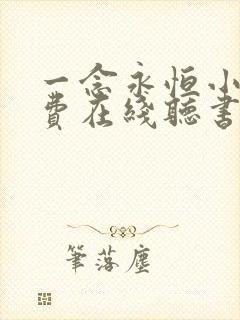 一念永恒小
費在綫聽書
筆落塵